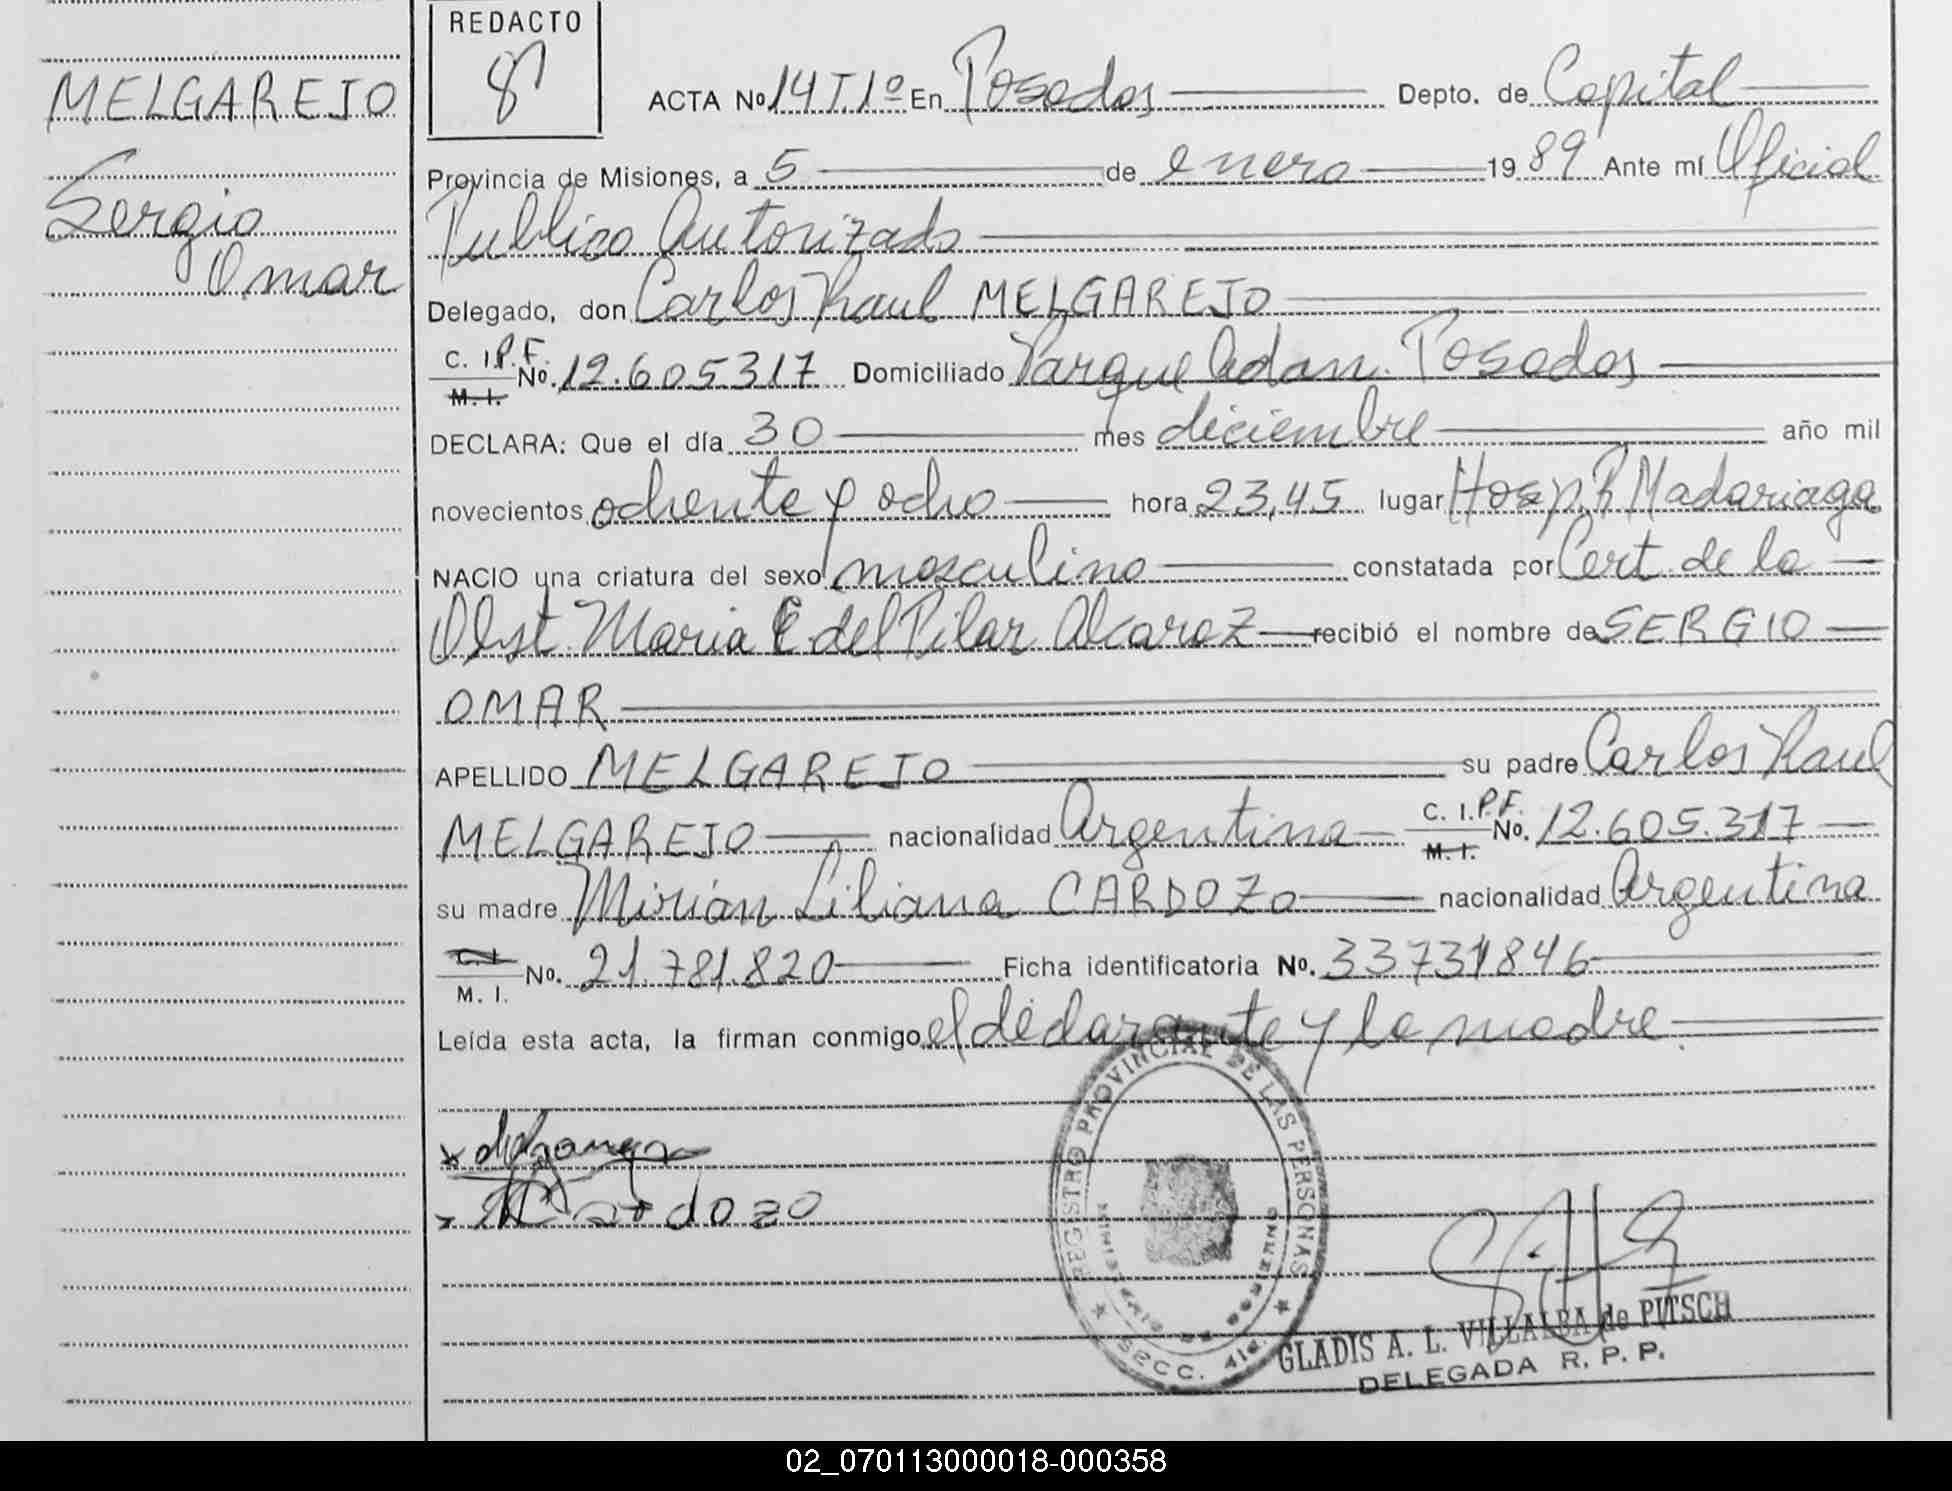 MELGAREJO
Sergio
Omar
REDACTO
ACTA No 14 T1º En Posadas Depto. de Capital
Provincia de Misiones, a 5 de enero 19 89 Ante mí Oficial
Publico Autorizado
Delegado, don Carlos Raul MELGAREJO
C. I.P.F.
M. I. No. 12.605317 Domiciliado Parque Adam. Posadas
DECLARA: Que el día 30 mes diciembre año mil
novecientos ochenta y ocho hora 23,45 lugar Hosp. R Madariaga
NACIO una criatura del sexo masculino constatada por Cert. de la
Obst. Maria C del Pilar Alcaraz recibió el nombre de SERGIO
OMAR
APELLIDO MELGAREJO su padre Carlos Raul
MELGAREJO nacionalidad Argentina C. I.P.F. M. I. No. 12.605.317
su madre Mirian Liliana CARDOZO nacionalidad Argentina
C. I.
M. I. No. 21.781.820 Ficha identificatoria No. 33731846
Leída esta acta, la firman conmigo el declarante y la madre.
Cardozo
REGISTRO PROVINCIAL DE LAS PERSONAS
MINISTERIO DE GOBIERNO
SECC. 4ta.
GLADIS A. L. VILLALBA de PITSCH
DELEGADA R. P. P.
02_070113000018-000358